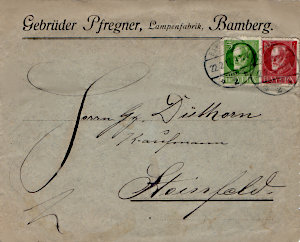 Gebrüder Pfregner, Lampenfabrik, Bamberg.
BAYERN
Herrn Gg. Düthorn
Kaufmann
Steinfeld.